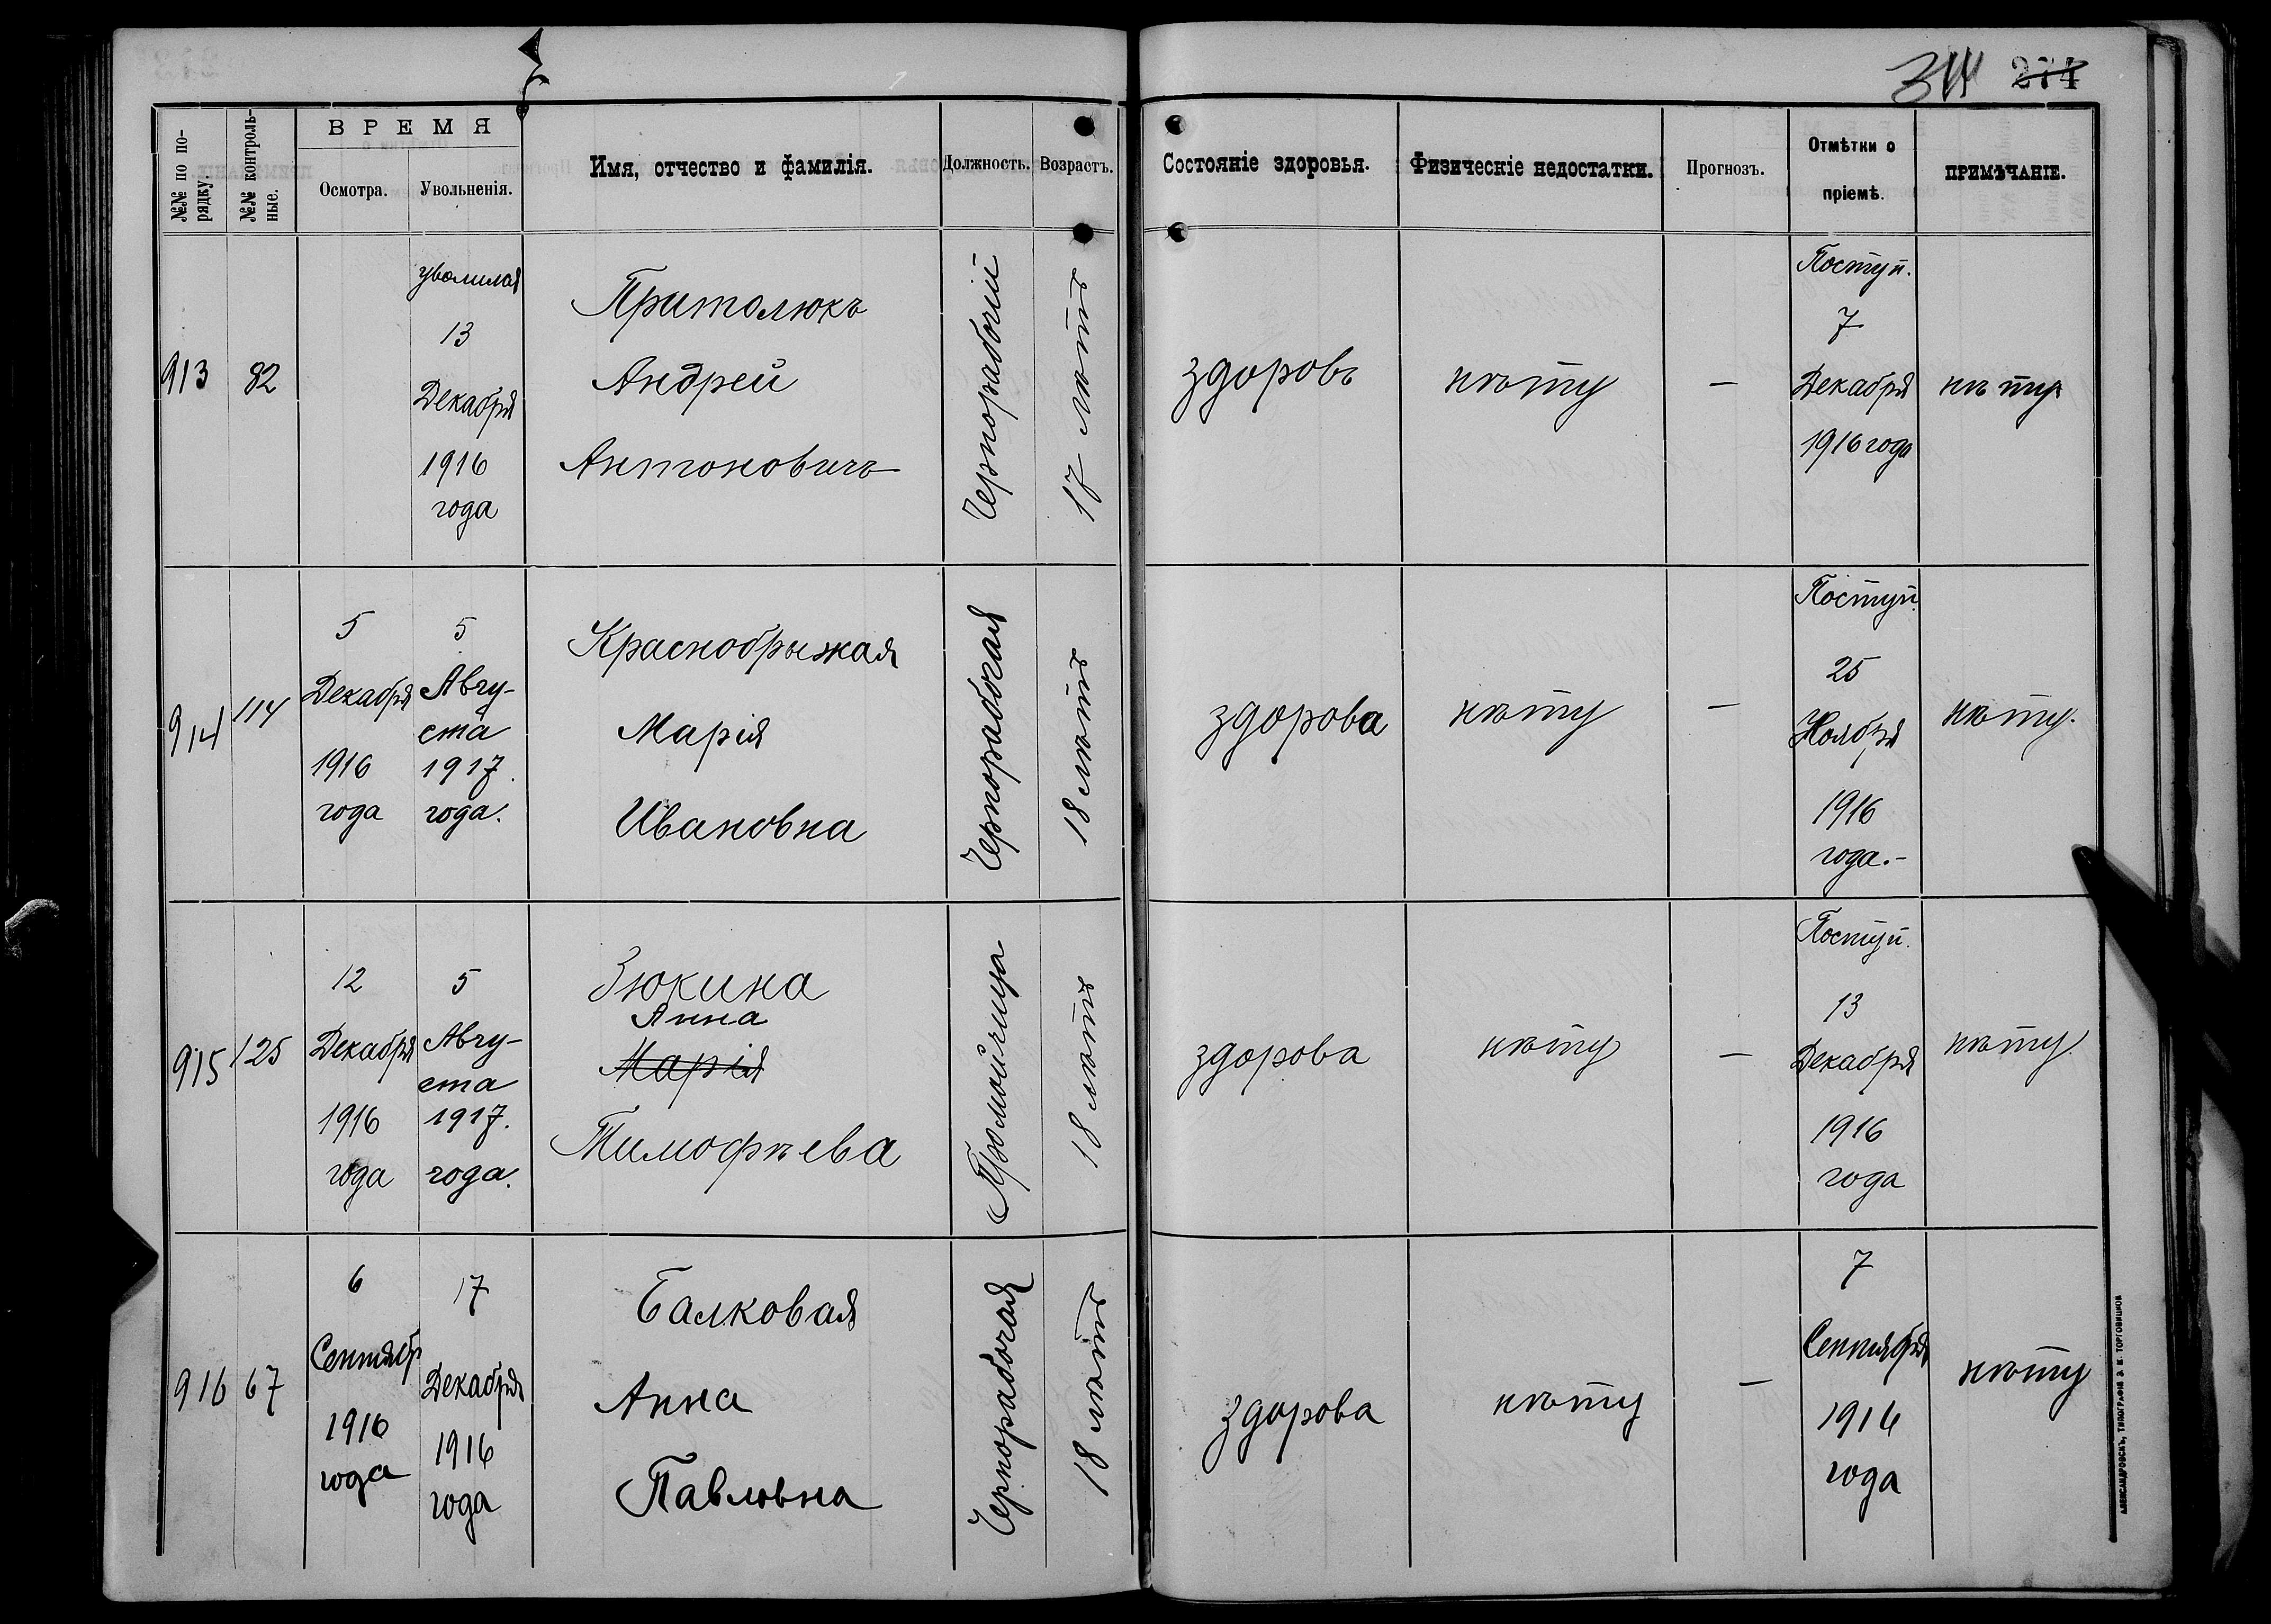 314 274
№№ по по-
рядку.
№№ контроль-
ные.
ВРЕМЯ
Осмотра.
Увольненія.
Имя, отчество и фамилія.
Должность.
Возрастъ.
Состояніе здоровья.
Физическіе недостатки.
Прогнозъ.
Отмѣтки о
пріемѣ.
ПРИМѢЧАНІЕ.
913
82
уволился
13
Декабря
1916
года
Притолюкъ
Андрей
Антоновичъ
Чернорабочій
17 лѣтъ
здоровъ
нѣту
—
Поступ.
7
Декабря
1916 года
нѣту
914
114
5
Декабря
1916
года
5
Авгу-
ста
1917.
года.
Краснобрыжая
Марія
Ивановна
Чернорабочая
18 лѣтъ
здорова
нѣту
—
Поступ.
25
Ноября
1916
года.-
нѣту.
915
125
12
Декабря
1916
года
5
Авгу-
ста
1917.
года.
Зюкина
Анна
Марія
Тимофѣева
18 лѣтъ
здорова
нѣту
—
Поступ.
13
Декабря
1916
года
нѣту
916
67
6
Сентябр
1916
года
17
Декабря
1916
года
Балковая
Анна
Павловна
Чернорабочая
18 лѣтъ
здорова
нѣту
—
7
Сентября
1916
года
нѣту
АЛЕКСАНДРОВСКЪ, ТИПОГРАФІЯ Э. И. ТОРГОВИЦКОЙ